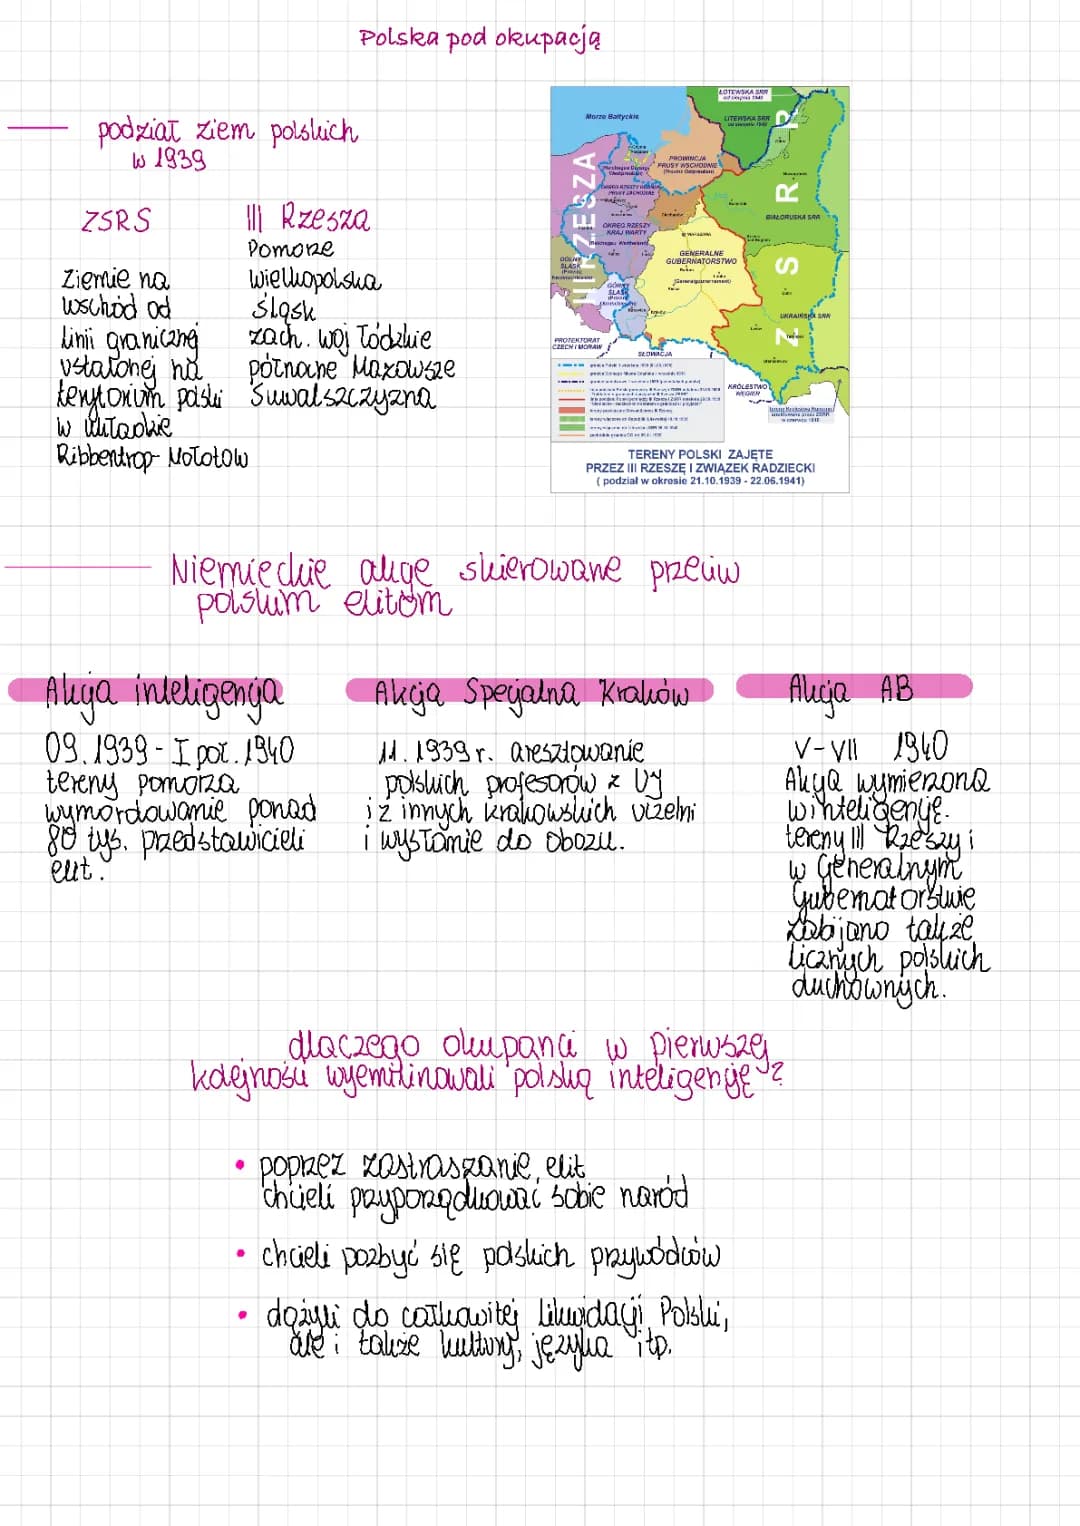 Polska pod okupacją
podział ziem polskich
w 1939
ZSRS
Ziemie na
wschód od
linii granicznej
ustalonej na
terytorium polski
w układzie
Ribbentrop-Mołotow
III Rzesza
Pomorze
Wielkopolska
Śląsk
zach. woj Łódzkie
północne Mazowsze
Suwalszczyzna
ŁOTEWSKA SRR
Morze Bałtyckie
LITEWSKA SRR
PROWINCJA
PRUSY WSCHODNIE
III RZESZA
Z S R R
OKRĘG RZESZY
KRAJ WARTY
BIAŁORUSKA SRR
WARSZAWA
GENERALNE
GUBERNATORSTWO
(Generalgouvernement)
GÓRNY
ŚLĄSK
UKRAIŃSKA SRR
PROTEKTORAT
CZECH I MORAW
SŁOWACJA
KRÓLESTWO
WĘGIER
TERENY POLSKI ZAJĘTE
PRZEZ III RZESZĘ I ZWIĄZEK RADZIECKI
( podział w okresie 21.10.1939 - 22.06.1941)
Niemieckie akcje skierowane przeciw
polskim elitom
Akcja inteligencja
09.1939 - I poł. 1940
tereny pomorza
wymordowanie ponad
80 tyś. przedstawicieli
elit.
Akcja Specjalna Kraków
11. 1939 r. aresztowanie
polskich profesorów z UJ
i z innych krakowskich uczelni
i wysłanie do obozu.
Akcja AB
V-VII 1940
Akcja wymierzona
w inteligencję.
tereny III Rzeszy i
w Generalnym
Gubernatorstwie
zabijano także
licznych polskich
duchownych.
dlaczego okupanci w pierwszej
kolejności wyemilinowali polską inteligencję?
• poprzez zastraszanie elit
chcieli przyporządkować sobie naród
• chcieli pozbyć się polskich przywódców
• dążyli do całkowitej likwidacji Polski,
ale i także kultury, języka itp.